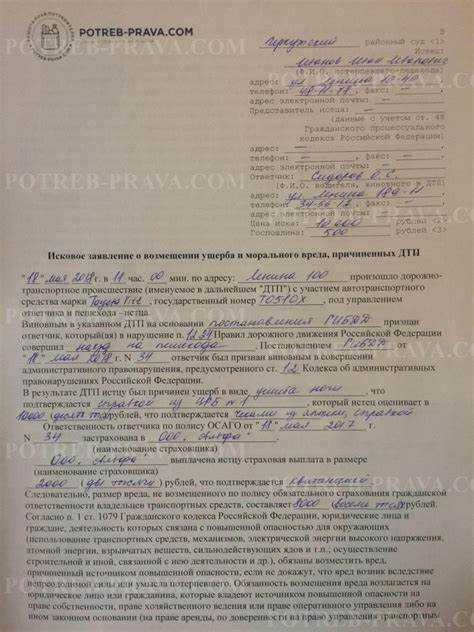 POTREB-PRAVA.COM
В
Иркутский районный суд <1>
Истец:
Иванов Иван Иванович
(Ф.И.О. потерпевшего-пешехода)
адрес: ул. Ленина 10-40
телефон: 48-11-78, факс: —,
адрес электронной почты: —
Представитель истца: —
(данные с учетом ст. 48
Гражданского процессуального
кодекса Российской Федерации)
адрес: —
телефон: —, факс: —,
адрес электронной почты: —
Ответчик: Сидоров О.С.
(Ф.И.О. водителя, виновного в ДТП)
адрес: ул. Ленина
телефон: 34-56-12, факс: —,
адрес электронной почты:
Цена иска: 10 000 рублей
Госпошлина: 500 рублей <3>
Исковое заявление о возмещении ущерба и морального вреда, причиненных ДТП
"18" мая 2018 г. в 11 час. 00 мин. по адресу: Ленина 100 произошло дорожно-
транспортное происшествие (именуемое в дальнейшем "ДТП") с участием автотранспортного
средства марки, государственный номер, под управлением
ответчика и пешехода - истца.
Виновным в указанном ДТП на основании постановления ГИБДД признан
ответчик, который(ая) в нарушение п. Правил дорожного движения Российской Федерации
совершил наезд на пешехода. Постановлением ГИБДД от
"18" мая 2018 г. N 34 ответчик был признан виновным в совершении
административного правонарушения, предусмотренного ст. 12 Кодекса об административных
правонарушениях Российской Федерации.
В результате ДТП истцу был причинен ущерб в виде ушиба ноги, что
подтверждается справкой из N 1, который истец оценивает в
10000 (десять) рублей, что подтверждается чеками, справкой
Ответственность ответчика по полису ОСАГО от "18" мая 2017 г.
N 34 застрахована в ООО "Альфа"
(наименование страховщика)
ООО "Альфа" выплачена истцу страховая выплата в размере
(наименование страховщика)
2000 (две тысячи) рублей, что подтверждается квитанцией.
Следовательно, размер вреда, не возмещенного по полису обязательного страхования гражданской
ответственности владельцев транспортных средств, составляет 8000 (восемь тысяч) рублей.
Согласно п. 1 ст. 1079 Гражданского кодекса Российской Федерации, юридические лица и
граждане, деятельность которых связана с повышенной опасностью для окружающих
(использование транспортных средств, механизмов, электрической энергии высокого напряжения,
атомной энергии, взрывчатых веществ, сильнодействующих ядов и т.п.; осуществление
строительной и иной, связанной с нею деятельности и др.), обязаны возместить вред,
причиненный источником повышенной опасности, если не докажут, что вред возник вследствие
непреодолимой силы или умысла потерпевшего. Обязанность возмещения вреда возлагается на
юридическое лицо или гражданина, которые владеют источником повышенной опасности на
праве собственности, праве хозяйственного ведения или праве оперативного управления либо на
ином законном основании (на праве аренды, по доверенности на право управления транспортным